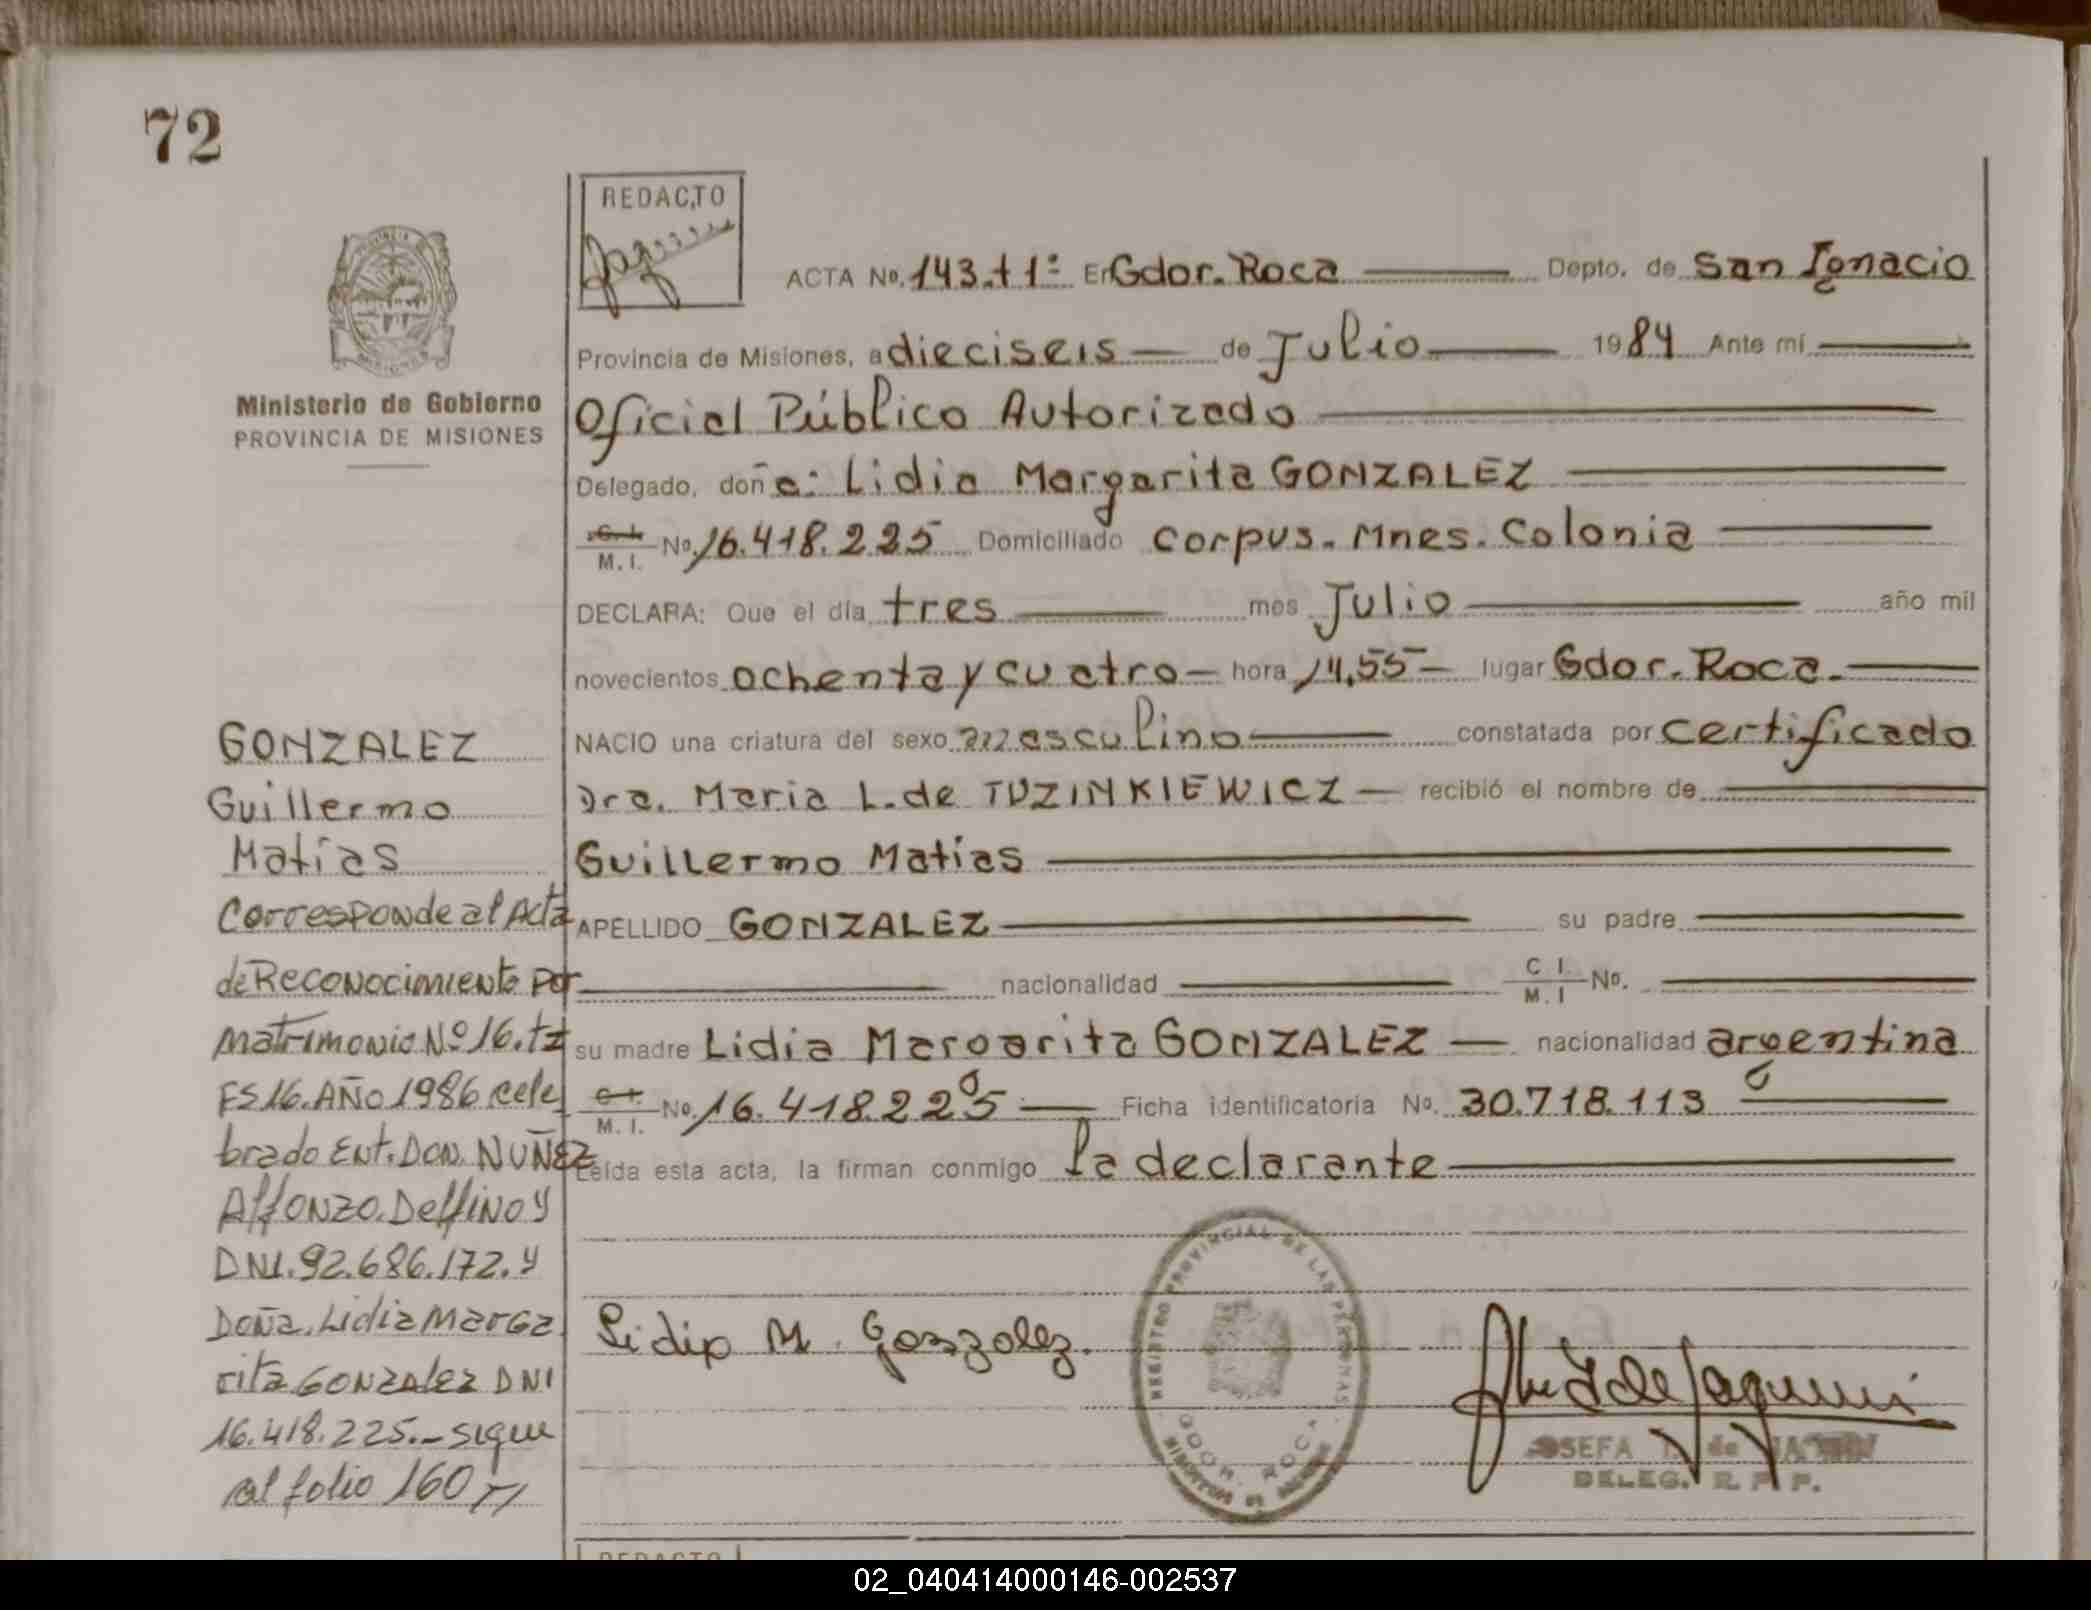 72
REDACTO
ACTA No. 143.t1º En Gdor. Roca Depto. de San Ignacio
Provincia de Misiones, a dieciseis de Julio 1984 Ante mí
Ministerio de Gobierno
PROVINCIA DE MISIONES
Oficial Público Autorizado
Delegado, doña: Lidia Margarita GONZALEZ
C.I. M.I. No. 16.418.225 Domiciliado Corpus. Mnes. Colonia
DECLARA: Que el día tres mes Julio año mil
novecientos ochenta y cuatro hora 14,55 lugar Gdor. Roca.
NACIO una criatura del sexo masculino constatada por certificado
Dra. Maria L. de TUZINKIEWICZ recibió el nombre de
Guillermo Matías
APELLIDO GONZALEZ su padre
nacionalidad C.I. M.I No.
su madre Lidia Margarita GONZALEZ nacionalidad argentina
C.I. M.I. No. 16.418.225 Ficha identificatoria No. 30.718.113
Leída esta acta, la firman conmigo la declarante
GONZALEZ
Guillermo
Matías
Corresponde al Acta
de Reconocimiento por
Matrimonio Nº 16. tI
FS 16. AÑO 1986 cele
brado Ent. Don. NUÑEZ
Alfonzo. Delfino y
DNI. 92.686.172. y
Doña. Lidia Marga
rita GONZALEZ DNI
16.418.225.- sigue
al folio 160
Lidia M. Gonzalez.
REGISTRO PROVINCIAL DE LAS PERSONAS
GDOR. ROCA
JOSEFA de
DELEG. R. P. P.
REDACTO
02_040414000146-002537